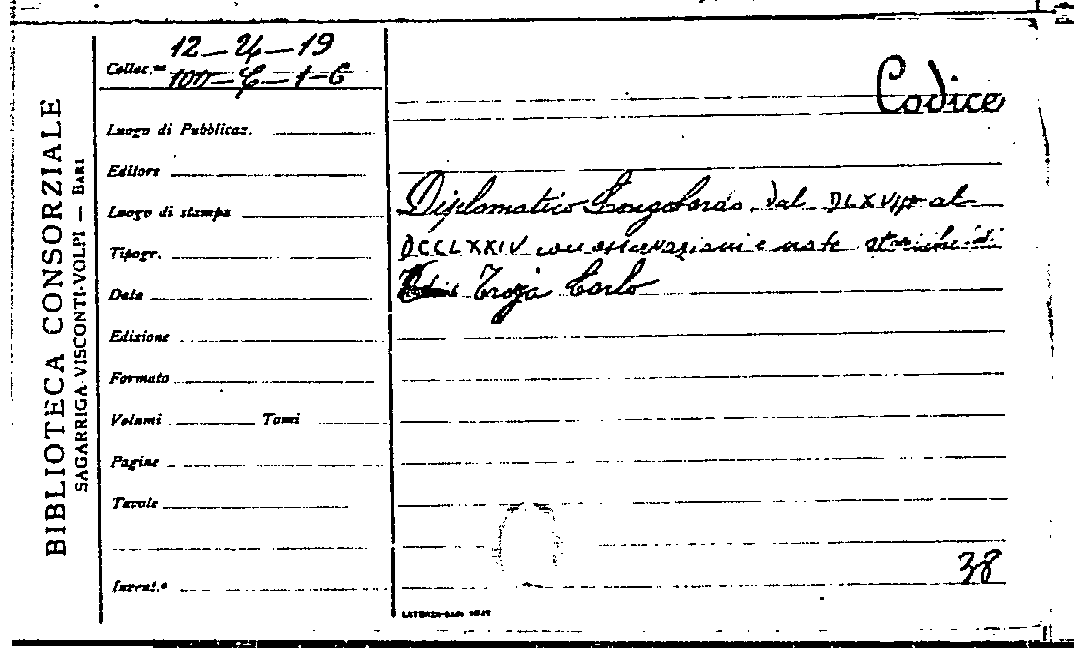 BIBLIOTECA CONSORZIALE
SAGARRIGA VISCONTI-VOLPI — BARI
12-4-19
Colloc.ne
Luogo di Pubblicaz.
Editore
Luogo di stampa
Tipogr.
Data
Edizione
Formato
Volumi Tomi
Pagine
Tavole
Invent.o
Codice
Diplomatico Longobardo dal DLXVIII al
DCCLXXIV con osservazioni e note storiche di
Troja Carlo
38